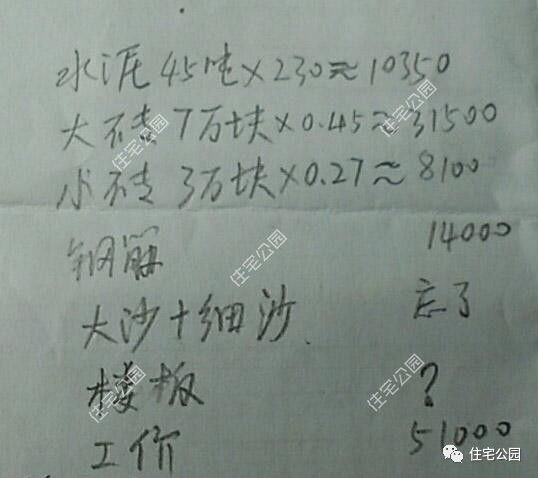 水泥 45吨×230≈10350
大不专 7万块×0.45≈31500
小不专 3万块×0.27≈8100
钢筋 14000
大沙+细沙 忘了
楼板 ?
工价 51000
住宅公园
住宅公园
住宅公园
住宅公园
住宅公园
住宅公园